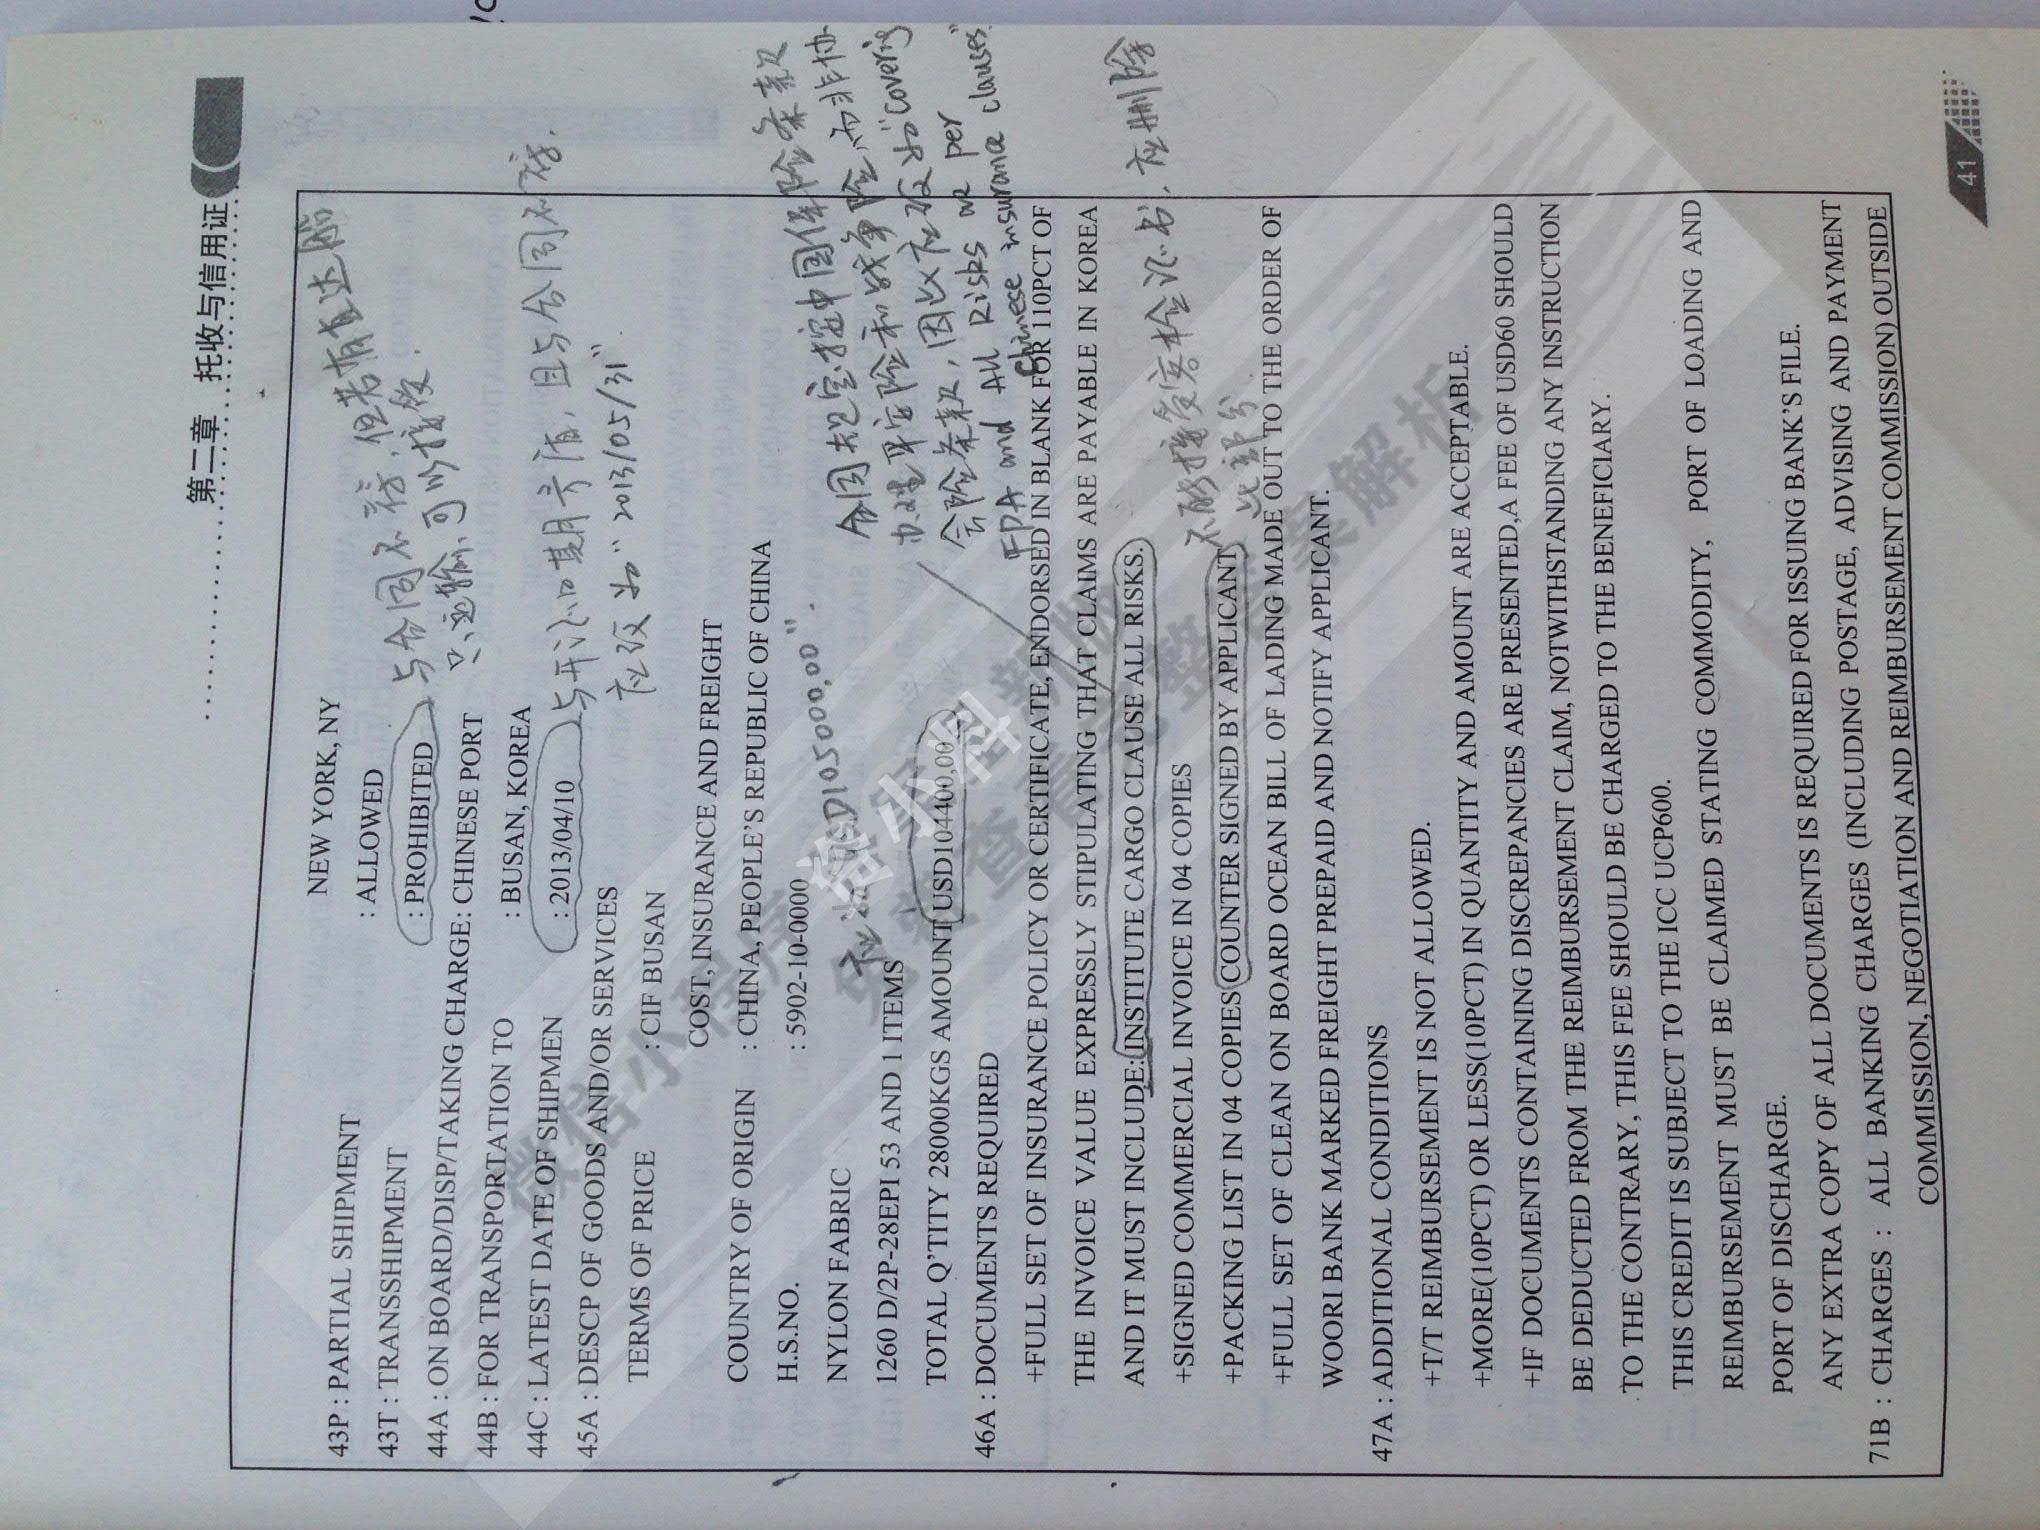 第二章 托收与信用证
NEW YORK, NY
43P : PARTIAL SHIPMENT : ALLOWED
43T : TRANSSHIPMENT : PROHIBITED
与合同不符，但若有直达船
只运输，可以接受.
44A : ON BOARD/DISP/TAKING CHARGE : CHINESE PORT
44B : FOR TRANSPORTATION TO : BUSAN, KOREA
44C : LATEST DATE OF SHIPMEN : 2013/04/10
与开证日期旁，且与合同不符.
应改为"2013/05/31"
45A : DESCP OF GOODS AND/OR SERVICES
TERMS OF PRICE : CIF BUSAN
COST, INSURANCE AND FREIGHT
COUNTRY OF ORIGIN : CHINA, PEOPLE'S REPUBLIC OF CHINA
H.S.NO. : 5902-10-0000
NYLON FABRIC
应为"USD105000.00".
1260 D/2P-28EPI 53 AND 1 ITEMS
TOTAL Q'TITY 28000KGS AMOUNT USD104400.00
合同规定按中国保险条款
办理平安险和战争险，而非协
会险条款，因此应改为"covering
FPA and All Risks as per
Chinese insurance clauses"
46A : DOCUMENTS REQUIRED
+FULL SET OF INSURANCE POLICY OR CERTIFICATE, ENDORSED IN BLANK FOR 110PCT OF
THE INVOICE VALUE EXPRESSLY STIPULATING THAT CLAIMS ARE PAYABLE IN KOREA
AND IT MUST INCLUDE: INSTITUTE CARGO CLAUSE ALL RISKS.
+SIGNED COMMERCIAL INVOICE IN 04 COPIES
+PACKING LIST IN 04 COPIES COUNTER SIGNED BY APPLICANT
不能接受客检证书，应删除
此部分
+FULL SET OF CLEAN ON BOARD OCEAN BILL OF LADING MADE OUT TO THE ORDER OF
WOORI BANK MARKED FREIGHT PREPAID AND NOTIFY APPLICANT.
47A : ADDITIONAL CONDITIONS
+T/T REIMBURSEMENT IS NOT ALLOWED.
+MORE(10PCT) OR LESS(10PCT) IN QUANTITY AND AMOUNT ARE ACCEPTABLE.
+IF DOCUMENTS CONTAINING DISCREPANCIES ARE PRESENTED,A FEE OF USD60 SHOULD
BE DEDUCTED FROM THE REIMBURSEMENT CLAIM, NOTWITHSTANDING ANY INSTRUCTION
TO THE CONTRARY, THIS FEE SHOULD BE CHARGED TO THE BENEFICIARY.
THIS CREDIT IS SUBJECT TO THE ICC UCP600.
REIMBURSEMENT MUST BE CLAIMED STATING COMMODITY, PORT OF LOADING AND
PORT OF DISCHARGE.
ANY EXTRA COPY OF ALL DOCUMENTS IS REQUIRED FOR ISSUING BANK'S FILE.
71B : CHARGES : ALL BANKING CHARGES (INCLUDING POSTAGE, ADVISING AND PAYMENT
COMMISSION, NEGOTIATION AND REIMBURSEMENT COMMISSION) OUTSIDE
41
资小料